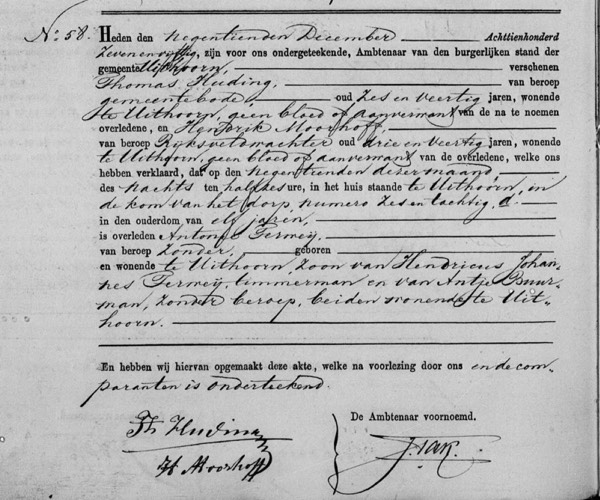 No. 58. Heden den negentienden December Achttienhonderd
Zevenenvijftig, zijn voor ons ondergeteekende, Ambtenaar van den burgerlijken stand der
gemeente Uithoorn, verschenen
Thomas Huding, van beroep
gemeentebode oud Zes en veertig jaren, wonende
te Uithoorn, geen bloed of aanverwant van de na te noemen
overledene, en Hendrik Moorhoff,
van beroep Rijksveldwachter oud drie en veertig jaren, wonende
te Uithoorn, geen bloed of aanverwant van de overledene, welke ons
hebben verklaard, dat op den negentienden dezer maand,
des nachts ten half zes ure, in het huis staande te Uithoorn, in
de kom van het dorp, numero zes en tachtig, d.
in den ouderdom van elf jaren,
is overleden Antonie Terweij,
van beroep Zonder, geboren
en wonende te Uithoorn, Zoon van Hendricus Johan-
nes Terweij, timmerman en van Antje Buur-
man, zonder beroep, beiden wonende te Uit-
hoorn.
En hebben wij hiervan opgemaakt deze akte, welke na voorlezing door ons en de com-
paranten is onderteekend.
De Ambtenaar voornoemd.
Th Huding
H Moorhoff